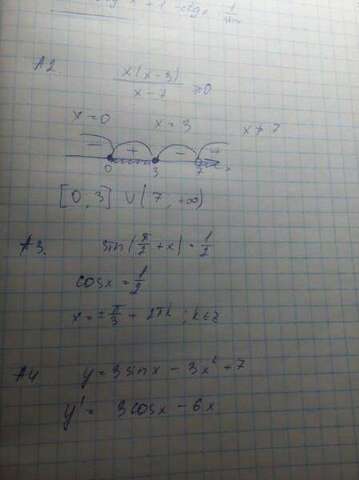 A2. x(x-3)/(x-7) ≥0
x=0 x=3 x≠7
- + - +
0 3 7 x
[0, 3] ∪ (7, +∞)
A3. sin(π/2+x)=1/2
cosx=1/2
x=±π/3+2πk, k∈z
A4 y=3sinx-3x²+7
y'= 3cosx-6x